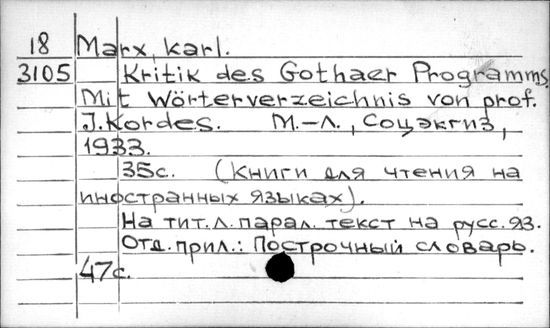 18 Marx, Karl.
3105 Kritik des Gothaer Programms.
Mit Wörterverzeichnis von prof.
J. Kordes. М.-Л., Соцэкгиз,
1933.
35с. (Книги для чтения на
иностранных языках).
На тит. л. парал. текст на русс. яз.
Отд. прил.: Построчный словарь.
47с.